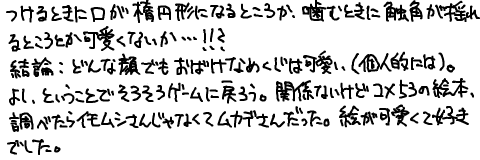 つけるときに口が楕円形になるところか、噛むときに触角が揺れ
るところとか可愛くないか…!!?
結論：どんな顔でもおばけなめくじは可愛い、(個人的には)。
よし、ということでそろそろゲームに戻ろう。関係ないけどコメ53の絵本、
調べたらイモムシさんじゃなくてムカデさんだった。絵が可愛くて好き
でした。